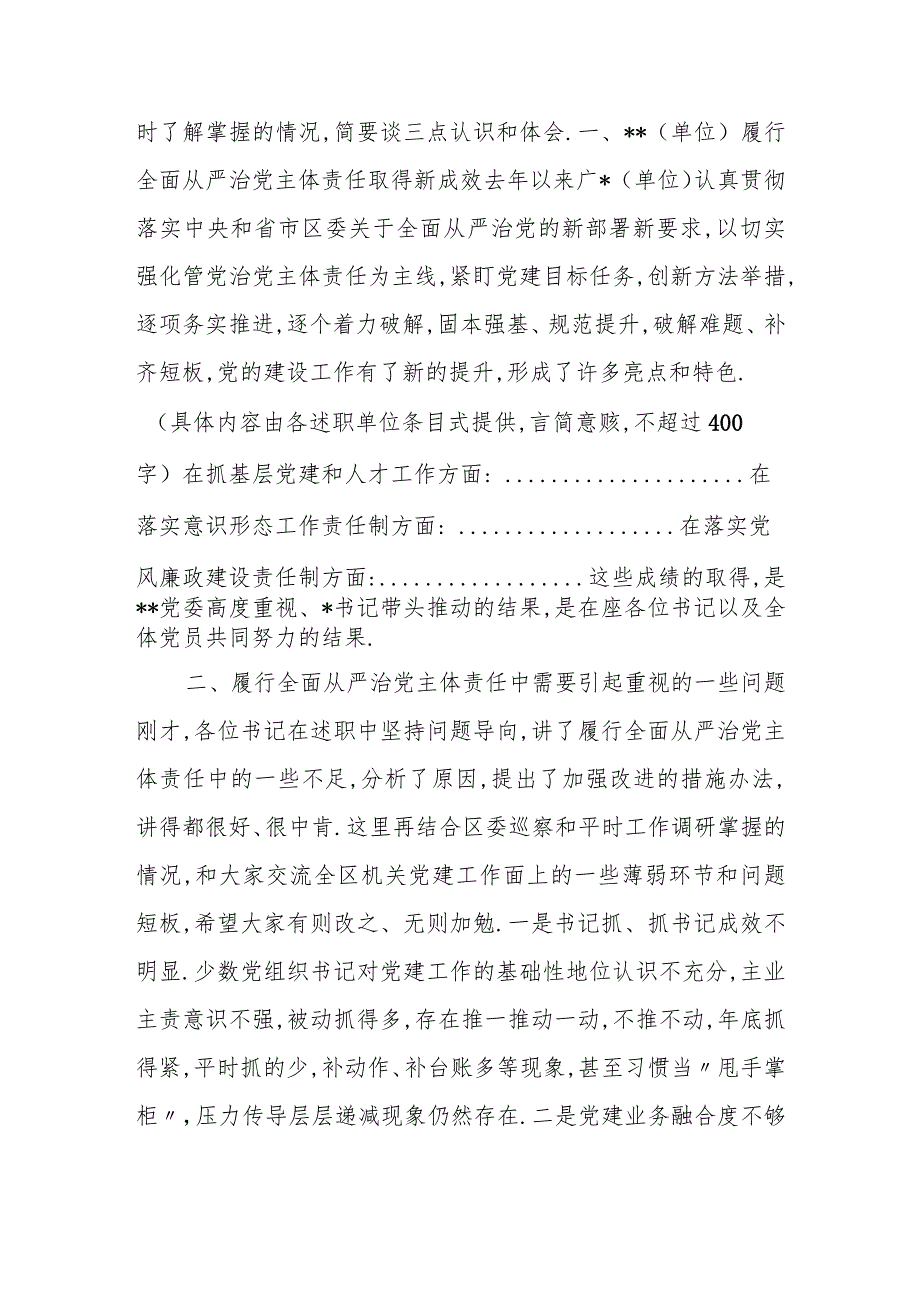 时了解掌握的情况,简要谈三点认识和体会.一、**（单位）履行
全面从严治党主体责任取得新成效去年以来广*（单位）认真贯彻
落实中央和省市区委关于全面从严治党的新部署新要求,以切实
强化管党治党主体责任为主线,紧盯党建目标任务,创新方法举措,
逐项务实推进,逐个着力破解,固本强基、规范提升,破解难题、补
齐短板,党的建设工作有了新的提升,形成了许多亮点和特色.
（具体内容由各述职单位条目式提供,言简意赅,不超过 400
字）在抓基层党建和人才工作方面: .....................在
落实意识形态工作责任制方面: ...................在落实党
风廉政建设责任制方面:..................这些成绩的取得,是
**党委高度重视、*书记带头推动的结果,是在座各位书记以及全
体党员共同努力的结果.
二、履行全面从严治党主体责任中需要引起重视的一些问题
刚才,各位书记在述职中坚持问题导向,讲了履行全面从严治党主
体责任中的一些不足,分析了原因,提出了加强改进的措施办法,
讲得都很好、很中肯.这里再结合区委巡察和平时工作调研掌握的
情况,和大家交流全区机关党建工作面上的一些薄弱环节和问题
短板,希望大家有则改之、无则加勉.一是书记抓、抓书记成效不
明显.少数党组织书记对党建工作的基础性地位认识不充分,主业
主责意识不强,被动抓得多,存在推一推动一动,不推不动,年底抓
得紧,平时抓的少,补动作、补台账多等现象,甚至习惯当〃甩手掌
柜〃,压力传导层层递减现象仍然存在.二是党建业务融合度不够